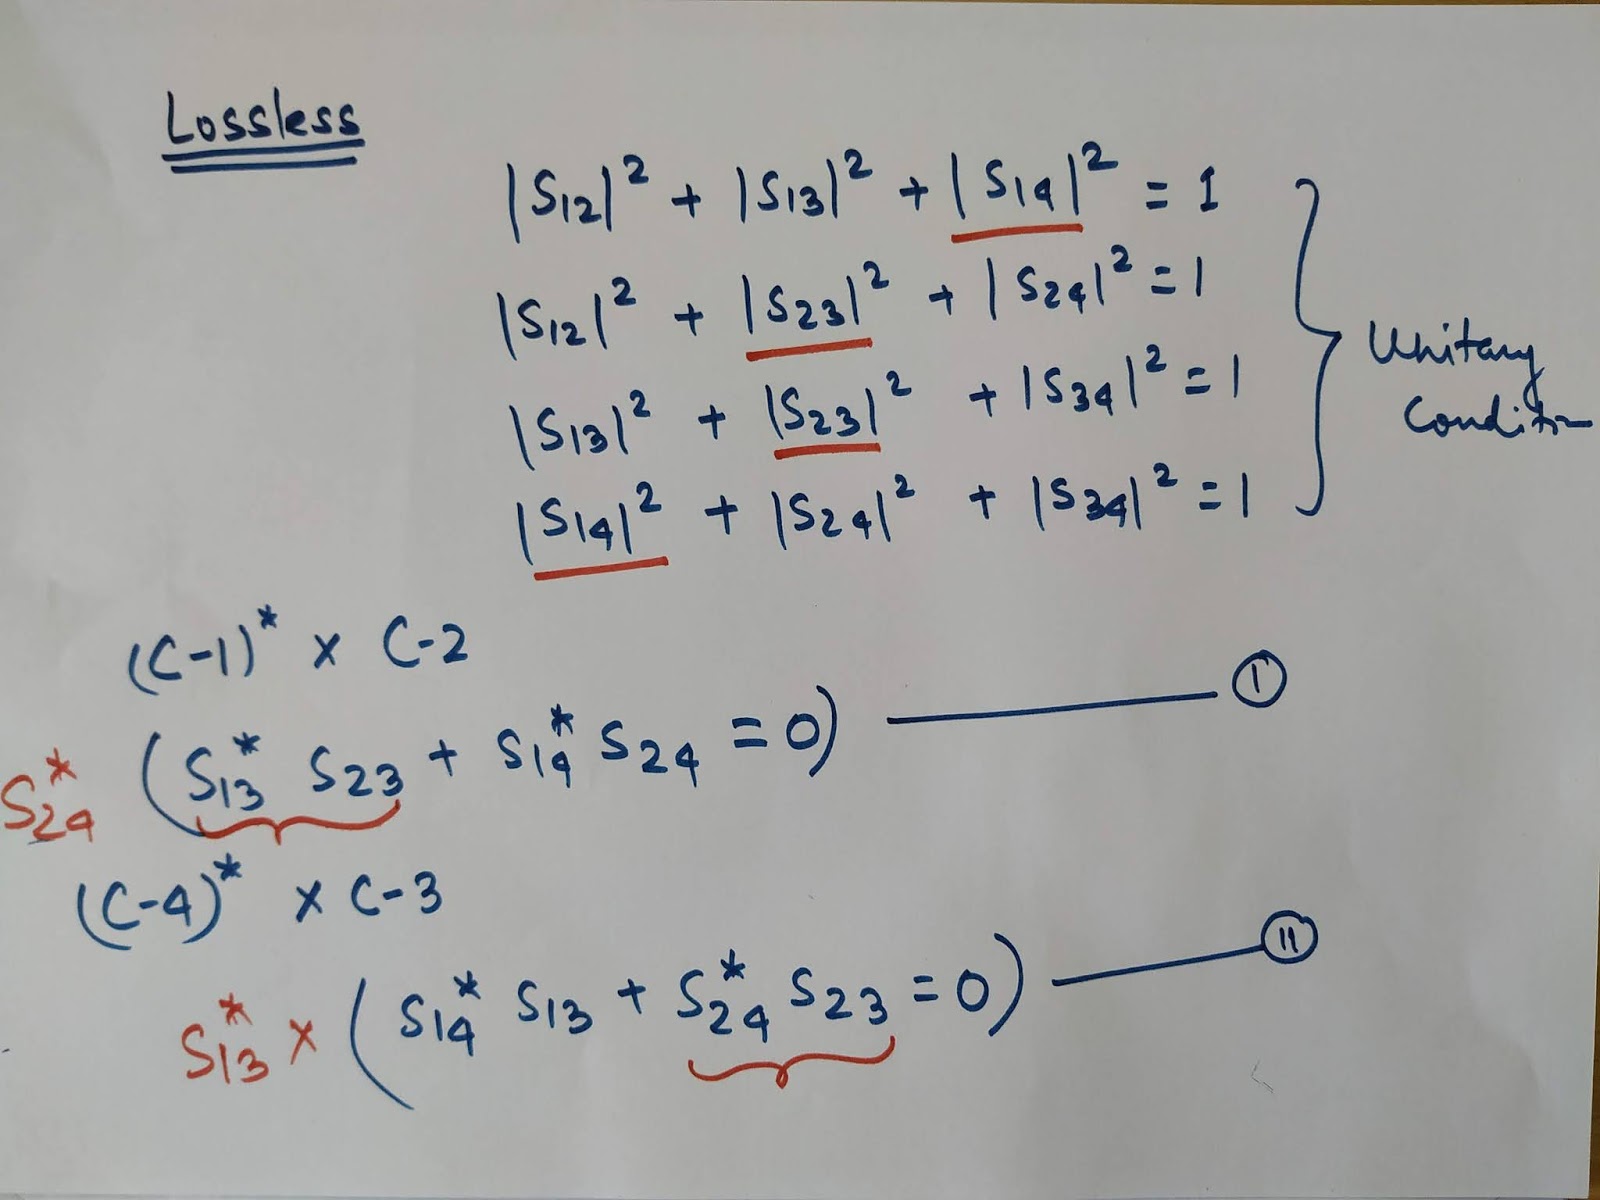 Lossless
|S12|² + |S13|² + |S14|² = 1
|S12|² + |S23|² + |S24|² = 1
|S13|² + |S23|² + |S34|² = 1
|S14|² + |S24|² + |S34|² = 1
Unitary
Condition
(C-1)* × C-2
S24* (S13* S23 + S14* S24 = 0) ——— I
(C-4)* × C-3
S13* × (S14* S13 + S24* S23 = 0) ——— II